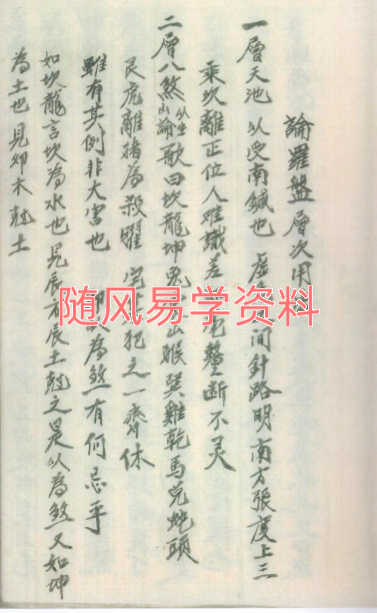 論羅盤層次用
一層天池以定南鍼也 虛 間針路明南方張度上三
乘坎離正位人难識差 毫釐断不灵
二層八煞以坐山論歌曰坎龍坤兔 山猴巽雞乾馬兌蛇頭
艮虎離猪為殺曜 宅 犯之一齊休
雖有其例非大害也 為煞有何忌乎
如坎龍言坎為水也見辰方辰土尅之是以為煞又如坤
為土也見卯木尅土
随风易学资料